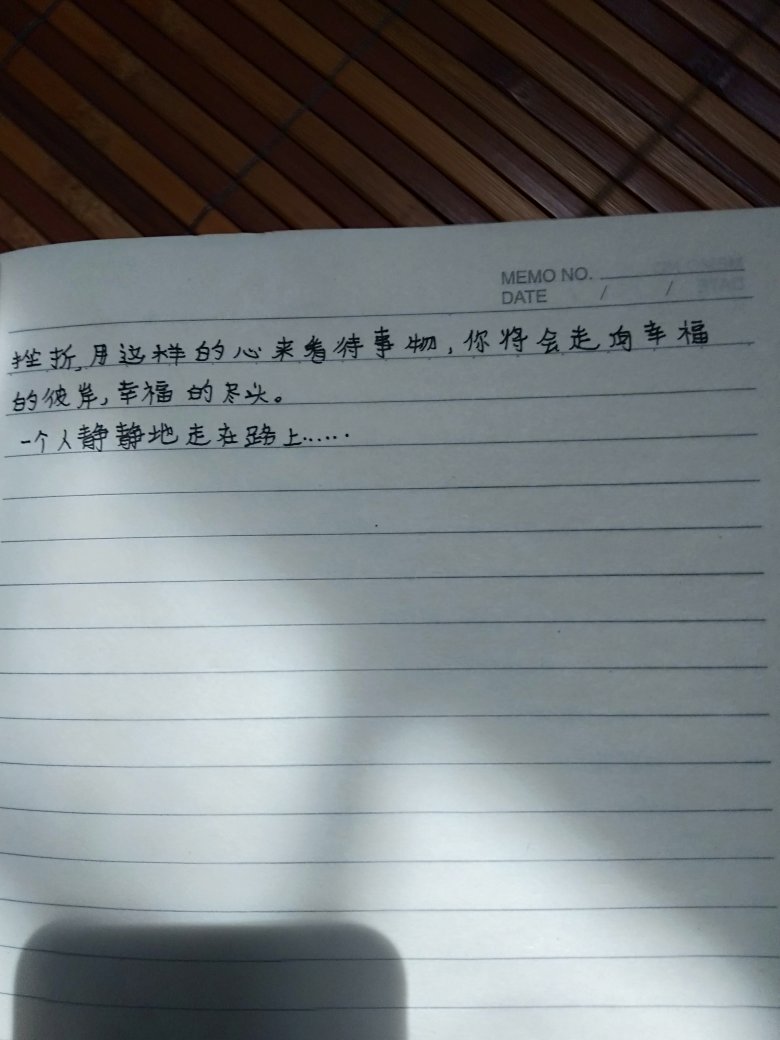 MEMO NO.
DATE / /
挫折,用这样的心来看待事物,你将会走向幸福
的彼岸,幸福的尽头。
一个人静静地走在路上……